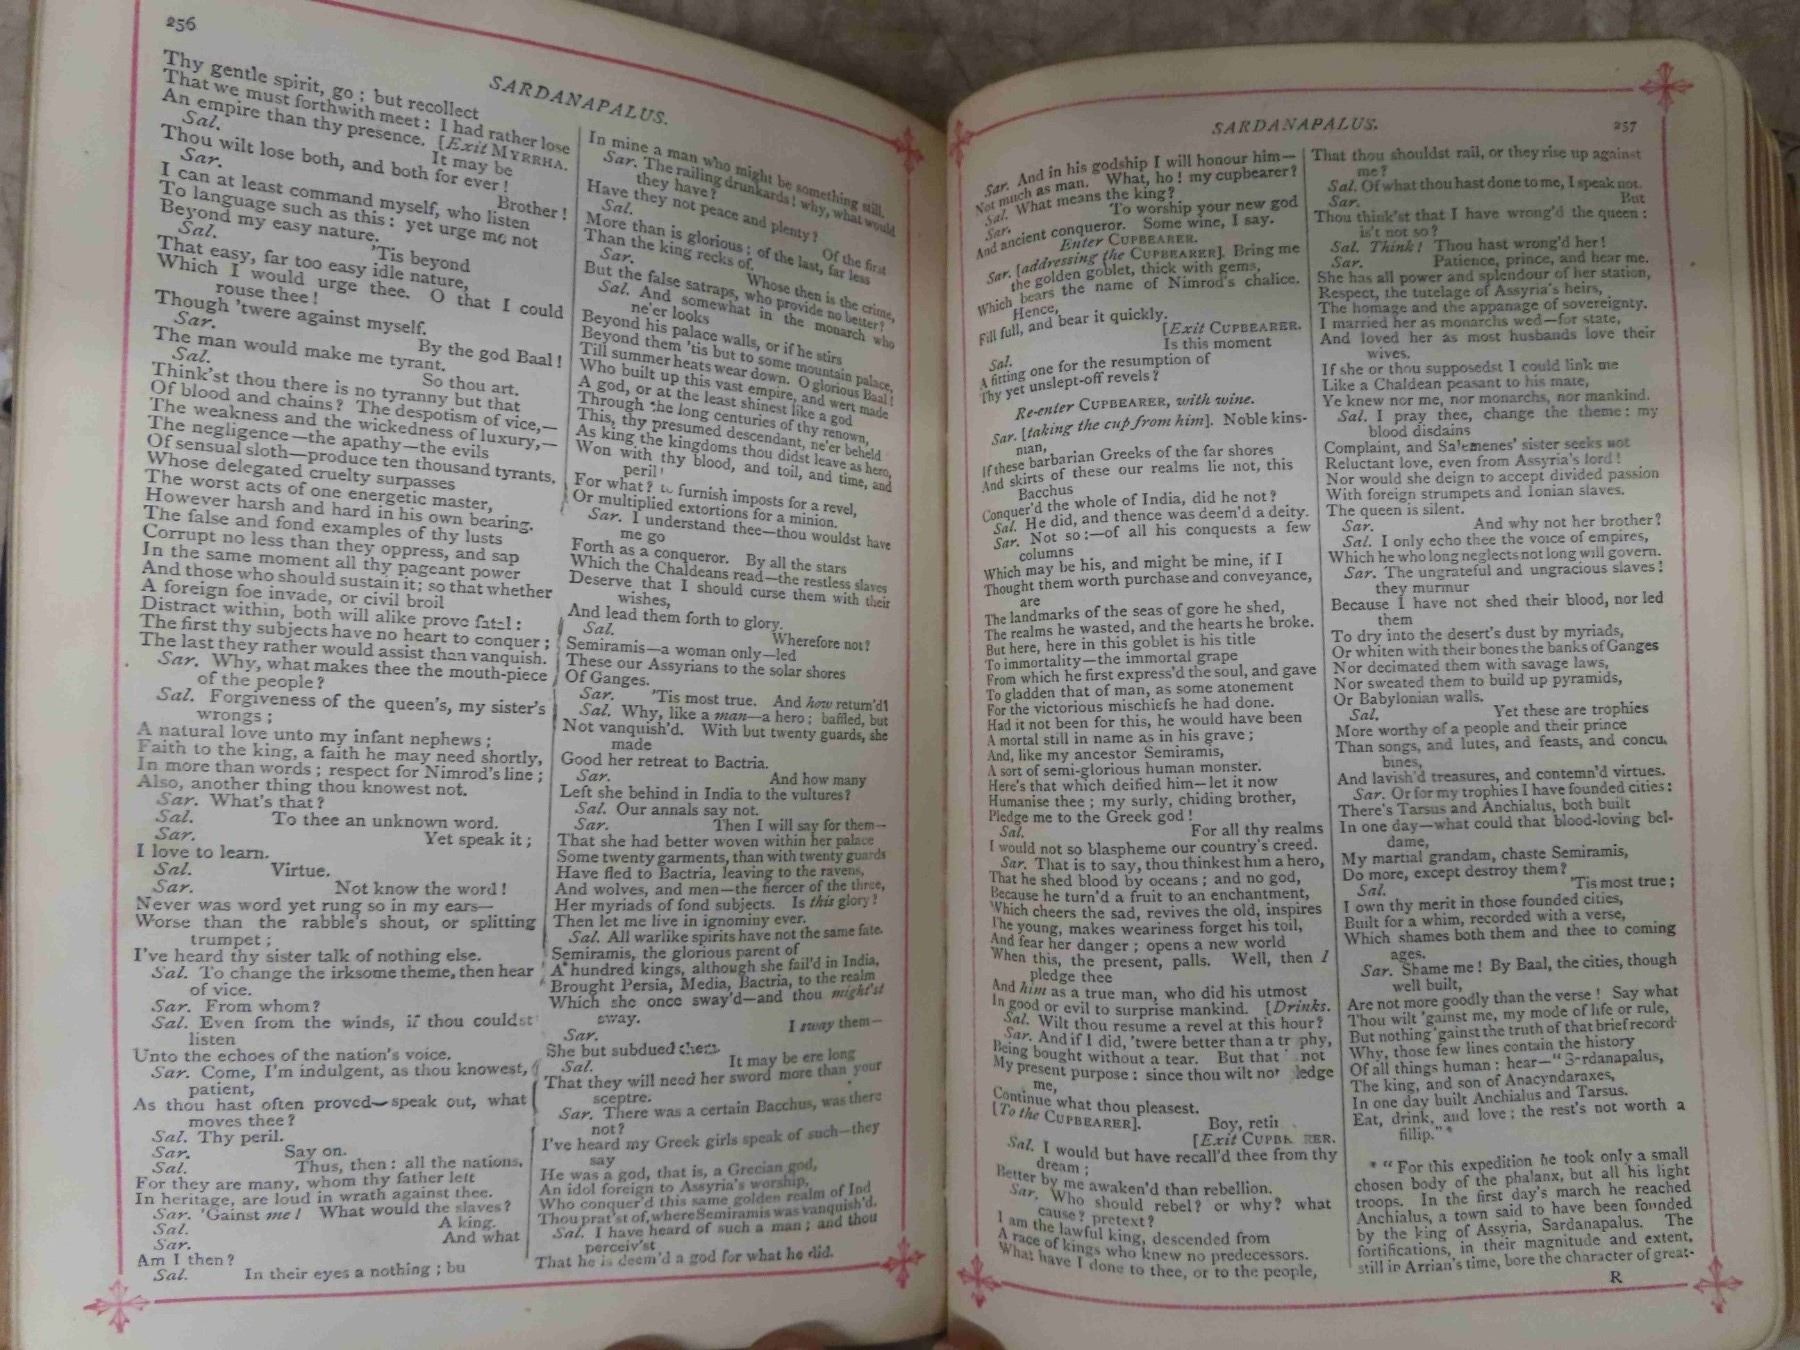 256
SARDANAPALUS.
Thy gentle spirit, go; but recollect
That we must forthwith meet: I had rather lose
An empire than thy presence. [Exit MYRRHA.
Sal. It may be
Thou wilt lose both, and both for ever!
Sar. Brother!
I can at least command myself, who listen
To language such as this: yet urge me not
Beyond my easy nature.
Sal. 'Tis beyond
That easy, far too easy idle nature,
Which I would urge thee. O that I could
rouse thee!
Though 'twere against myself.
Sar. By the god Baal!
The man would make me tyrant.
Sal. So thou art.
Think'st thou there is no tyranny but that
Of blood and chains? The despotism of vice,—
The weakness and the wickedness of luxury,—
The negligence—the apathy—the evils
Of sensual sloth—produce ten thousand tyrants,
Whose delegated cruelty surpasses
The worst acts of one energetic master,
However harsh and hard in his own bearing.
The false and fond examples of thy lusts
Corrupt no less than they oppress, and sap
In the same moment all thy pageant power
And those who should sustain it; so that whether
A foreign foe invade, or civil broil
Distract within, both will alike prove fatal:
The first thy subjects have no heart to conquer;
The last they rather would assist than vanquish.
Sar. Why, what makes thee the mouth-piece
of the people?
Sal. Forgiveness of the queen's, my sister's
wrongs;
A natural love unto my infant nephews;
Faith to the king, a faith he may need shortly,
In more than words; respect for Nimrod's line;
Also, another thing thou knowest not.
Sar. What's that?
Sal. To thee an unknown word.
Sar. Yet speak it;
I love to learn.
Sal. Virtue.
Sar. Not know the word!
Never was word yet rung so in my ears—
Worse than the rabble's shout, or splitting
trumpet;
I've heard thy sister talk of nothing else.
Sal. To change the irksome theme, then hear
of vice.
Sar. From whom?
Sal. Even from the winds, if thou couldst
listen
Unto the echoes of the nation's voice.
Sar. Come, I'm indulgent, as thou knowest,
patient,
As thou hast often proved—speak out, what
moves thee?
Sal. Thy peril.
Sar. Say on.
Sal. Thus, then: all the nations,
For they are many, whom thy father left
In heritage, are loud in wrath against thee.
Sar. 'Gainst me! What would the slaves?
Sal. A king.
Sar. And what
Am I then?
Sal. In their eyes a nothing; bu
In mine a man who might be something still.
Sar. The railing drunkards! why, what would
they have?
Have they not peace and plenty?
Sal. Of the first
More than is glorious; of the last, far less
Than the king recks of.
Sar. Whose then is the crime,
But the false satraps, who provide no better?
Sal. And somewhat in the monarch who
ne'er looks
Beyond his palace walls, or if he stirs
Beyond them 'tis but to some mountain palace,
Till summer heats wear down. O glorious Baal!
Who built up this vast empire, and wert made
A god, or at the least shinest like a god
Through the long centuries of thy renown,
This, thy presumed descendant, ne'er beheld
As king the kingdoms thou didst leave as hero,
Won with thy blood, and toil, and time, and
peril!
For what? to furnish imposts for a revel,
Or multiplied extortions for a minion.
Sar. I understand thee—thou wouldst have
me go
Forth as a conqueror. By all the stars
Which the Chaldeans read—the restless slaves
Deserve that I should curse them with their
wishes,
And lead them forth to glory.
Sal. Wherefore not?
Semiramis—a woman only—led
These our Assyrians to the solar shores
Of Ganges.
Sar. 'Tis most true. And how return'd?
Sal. Why, like a man—a hero; baffled, but
Not vanquish'd. With but twenty guards, she
made
Good her retreat to Bactria.
Sar. And how many
Left she behind in India to the vultures?
Sal. Our annals say not.
Sar. Then I will say for them—
That she had better woven within her palace
Some twenty garments, than with twenty guards
Have fled to Bactria, leaving to the ravens,
And wolves, and men—the fiercer of the three,
Her myriads of fond subjects. Is this glory?
Then let me live in ignominy ever.
Sal. All warlike spirits have not the same fate.
Semiramis, the glorious parent of
A hundred kings, although she fail'd in India,
Brought Persia, Media, Bactria, to the realm
Which she once sway'd—and thou might'st
sway.
Sar. I sway them—
She but subdued them.
Sal. It may be ere long
That they will need her sword more than your
sceptre.
Sar. There was a certain Bacchus, was there
not?
I've heard my Greek girls speak of such—they
say
He was a god, that is, a Grecian god,
An idol foreign to Assyria's worship,
Who conquer'd this same golden realm of Ind
Thou prat'st of, where Semiramis was vanquish'd.
Sal. I have heard of such a man; and thou
perceiv'st
That he is deem'd a god for what he did.
SARDANAPALUS.
257
Sar. And in his godship I will honour him—
Not much as man. What, ho! my cupbearer?
Sal. What means the king?
Sar. To worship your new god
And ancient conqueror. Some wine, I say.
Enter CUPBEARER.
Sar. [addressing the CUPBEARER]. Bring me
the golden goblet, thick with gems,
Which bears the name of Nimrod's chalice.
Hence,
Fill full, and bear it quickly.
[Exit CUPBEARER.
Sal. Is this moment
A fitting one for the resumption of
Thy yet unslept-off revels?
Re-enter CUPBEARER, with wine.
Sar. [taking the cup from him]. Noble kins-
man,
If these barbarian Greeks of the far shores
And skirts of these our realms lie not, this
Bacchus
Conquer'd the whole of India, did he not?
Sal. He did, and thence was deem'd a deity.
Sar. Not so:—of all his conquests a few
columns
Which may be his, and might be mine, if I
Thought them worth purchase and conveyance,
are
The landmarks of the seas of gore he shed,
The realms he wasted, and the hearts he broke.
But here, here in this goblet is his title
To immortality—the immortal grape
From which he first express'd the soul, and gave
To gladden that of man, as some atonement
For the victorious mischiefs he had done.
Had it not been for this, he would have been
A mortal still in name as in his grave;
And, like my ancestor Semiramis,
A sort of semi-glorious human monster.
Here's that which deified him—let it now
Humanise thee; my surly, chiding brother,
Pledge me to the Greek god!
Sal. For all thy realms
I would not so blaspheme our country's creed.
Sar. That is to say, thou thinkest him a hero,
That he shed blood by oceans; and no god,
Because he turn'd a fruit to an enchantment,
Which cheers the sad, revives the old, inspires
The young, makes weariness forget his toil,
And fear her danger; opens a new world
When this, the present, palls. Well, then I
pledge thee
And him as a true man, who did his utmost
In good or evil to surprise mankind. [Drinks.
Sal. Wilt thou resume a revel at this hour?
Sar. And if I did, 'twere better than a tr phy,
Being bought without a tear. But that not
My present purpose: since thou wilt not ledge
me,
Continue what thou pleasest.
[To the CUPBEARER]. Boy, retir
[Exit CUPBEARER.
Sal. I would but have recall'd thee from thy
dream;
Better by me awaken'd than rebellion.
Sar. Who should rebel? or why? what
cause? pretext?
I am the lawful king, descended from
A race of kings who knew no predecessors.
What have I done to thee, or to the people,
That thou shouldst rail, or they rise up against
me?
Sal. Of what thou hast done to me, I speak not.
Sar. But
Thou think'st that I have wrong'd the queen:
is't not so?
Sal. Think! Thou hast wrong'd her!
Sar. Patience, prince, and hear me.
She has all power and splendour of her station,
Respect, the tutelage of Assyria's heirs,
The homage and the appanage of sovereignty.
I married her as monarchs wed—for state,
And loved her as most husbands love their
wives.
If she or thou supposedst I could link me
Like a Chaldean peasant to his mate,
Ye knew nor me, nor monarchs, nor mankind.
Sal. I pray thee, change the theme: my
blood disdains
Complaint, and Salemenes' sister seeks not
Reluctant love, even from Assyria's lord!
Nor would she deign to accept divided passion
With foreign strumpets and Ionian slaves.
The queen is silent.
Sar. And why not her brother?
Sal. I only echo thee the voice of empires,
Which he who long neglects not long will govern.
Sar. The ungrateful and ungracious slaves!
they murmur
Because I have not shed their blood, nor led
them
To dry into the desert's dust by myriads,
Or whiten with their bones the banks of Ganges
Nor decimated them with savage laws,
Nor sweated them to build up pyramids,
Or Babylonian walls.
Sal. Yet these are trophies
More worthy of a people and their prince
Than songs, and lutes, and feasts, and concu.
bines,
And lavish'd treasures, and contemn'd virtues.
Sar. Or for my trophies I have founded cities:
There's Tarsus and Anchialus, both built
In one day—what could that blood-loving bel-
dame,
My martial grandam, chaste Semiramis,
Do more, except destroy them?
Sal. 'Tis most true;
I own thy merit in those founded cities,
Built for a whim, recorded with a verse,
Which shames both them and thee to coming
ages.
Sar. Shame me! By Baal, the cities, though
well built,
Are not more goodly than the verse! Say what
Thou wilt 'gainst me, my mode of life or rule,
But nothing 'gainst the truth of that brief record
Why, those few lines contain the history
Of all things human: hear—"Sardanapalus,
The king, and son of Anacyndaraxes,
In one day built Anchialus and Tarsus.
Eat, drink, and love; the rest's not worth a
fillip." *
* "For this expedition he took only a small
chosen body of the phalanx, but all his light
troops. In the first day's march he reached
Anchialus, a town said to have been founded
by the king of Assyria, Sardanapalus. The
fortifications, in their magnitude and extent,
still in Arrian's time, bore the character of great-
R